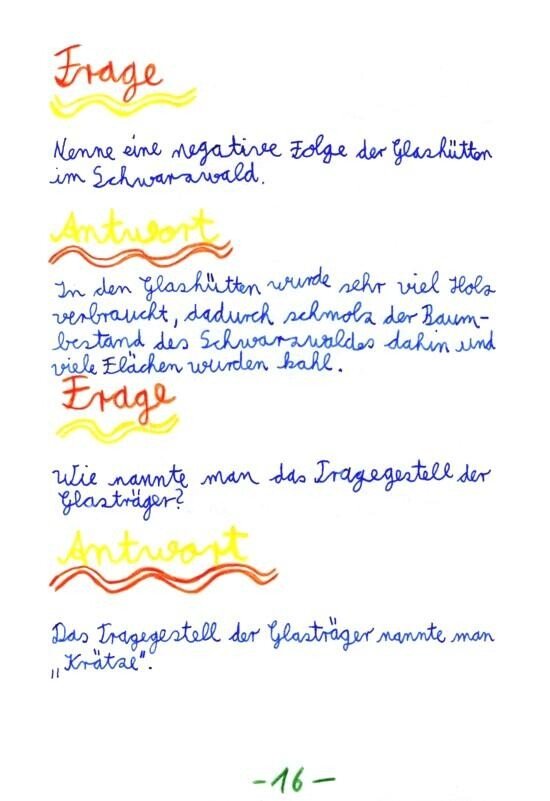 Frage
Nenne eine negative Folge der Glashütten
im Schwarzwald.
Antwort
In den Glashütten wurde sehr viel Holz
verbraucht, dadurch schmolz der Baum-
bestand des Schwarzwaldes dahin und
viele Flächen wurden kahl.
Frage
Wie nannte man das Tragegestell der
Glasträger?
Antwort
Das Tragegestell der Glasträger nannte man
„Krätze".
-16-